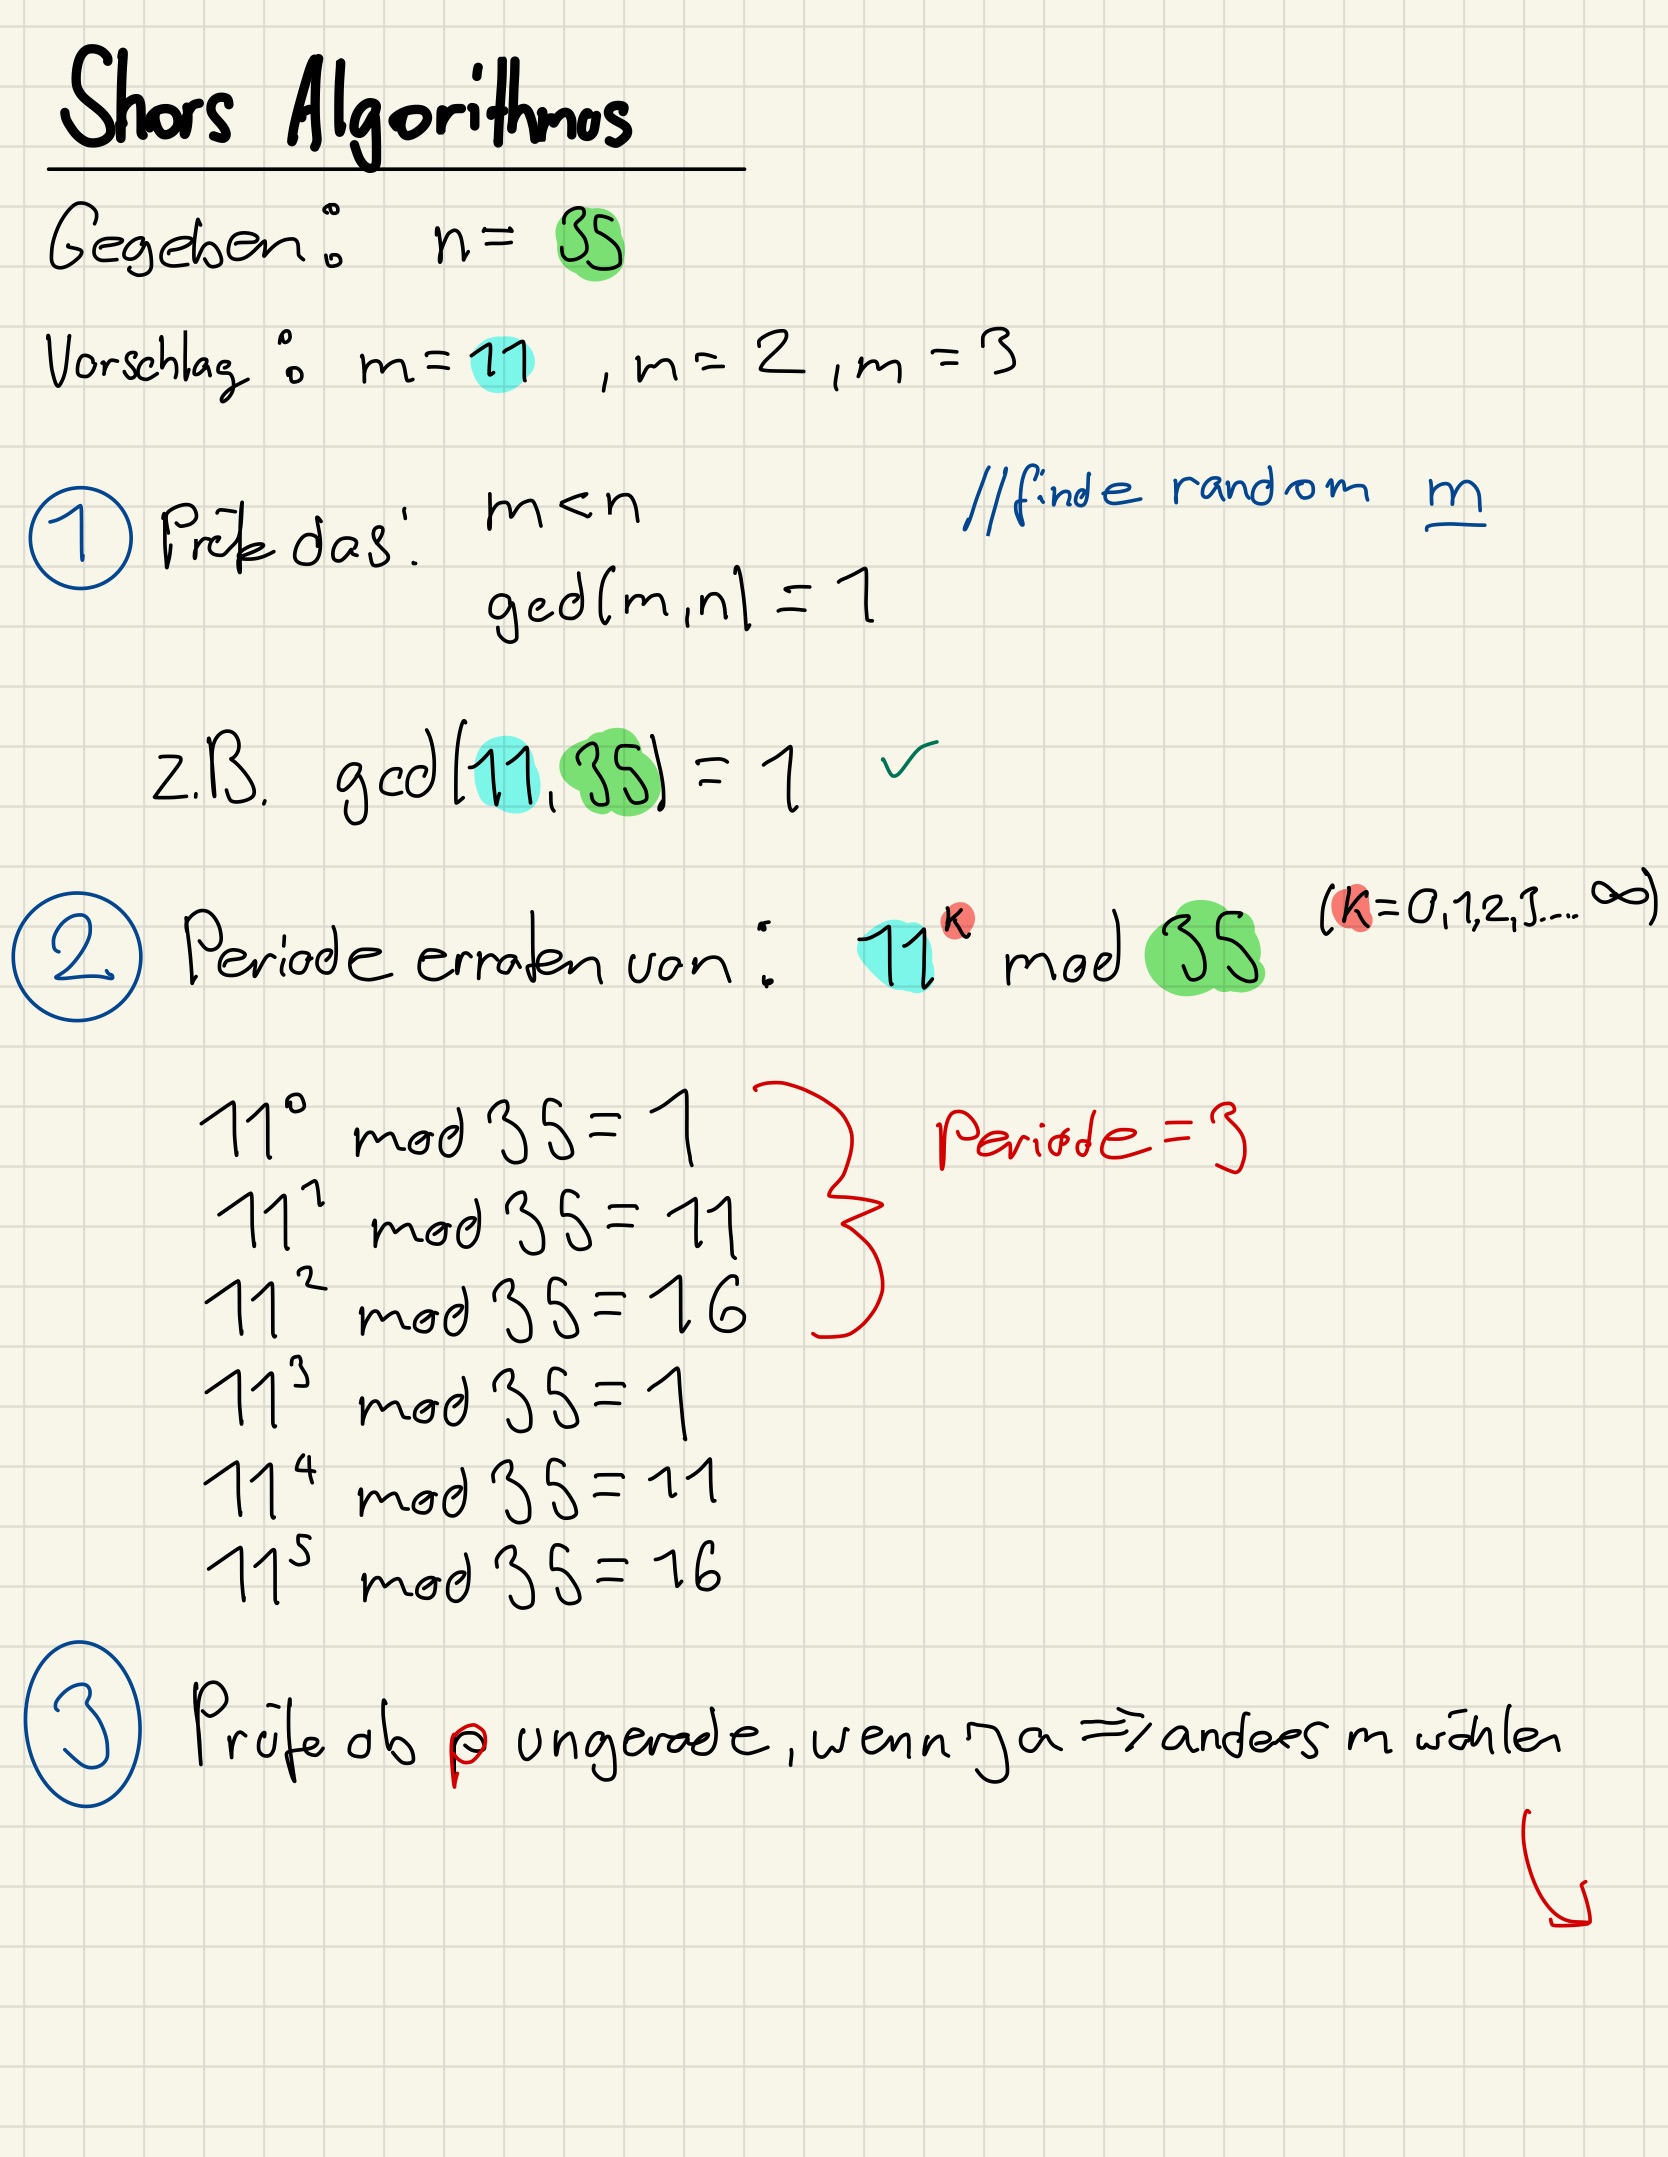 Shors Algorithmus
Gegeben: n = 35
Vorschlag: m = 11, m = 2, m = 3
//finde random m
① Prüfe das: m < n
gcd(m,n) = 1
z.B. gcd(11, 35) = 1 ✓
② Periode erraten von: 11^k mod 35 (k=0,1,2,3.... ∞)
11^0 mod 35 = 1
Periode = 3
11^1 mod 35 = 11
11^2 mod 35 = 16
11^3 mod 35 = 1
11^4 mod 35 = 11
11^5 mod 35 = 16
③ Prüfe ob p ungerade, wenn ja => anderes m wählen